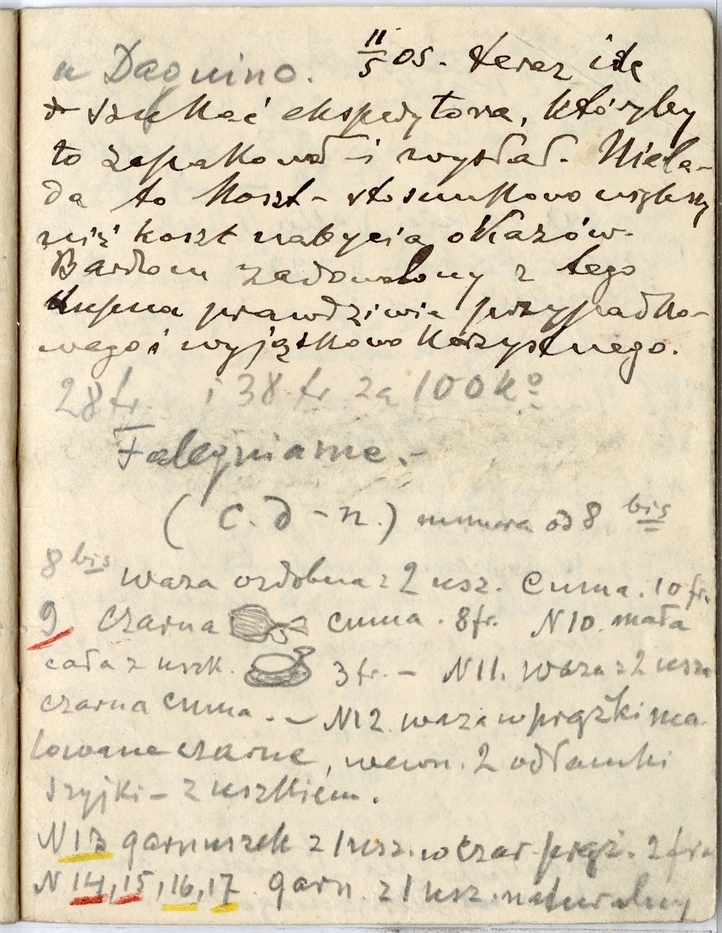 u Daguino. 11/5 05. teraz idę
szukać ekspedytora, któryby
to zapakował i wysłał. Niela-
da to koszt - stosunkowo większy
niż koszt nabycia okazów.
Bardzom zadowolony z tego
kupna prawdziwie przypadko-
wego i wyjątkowo korzystnego.
28 fr. i 38 fr za 100 ko
(c. d - n.) numera od 8 bis
8 bis waza ozdobna z 2 usz. Cuma. 10 fr.
9 czarna cuma. 8 fr. N 10. mała
cała z uszk. 3 fr. - N 11. waza z 2 usza
czarna cuma. - N 12 waza w prążki ma-
lowane czarne, wewn. 2 odłamki
szyjki - z uszkiem.
N 13 garnuszek z 1 usz. w czar. prąż. 2 fr.
N 14, 15, 16, 17. garn. z 1 usz. naturalny